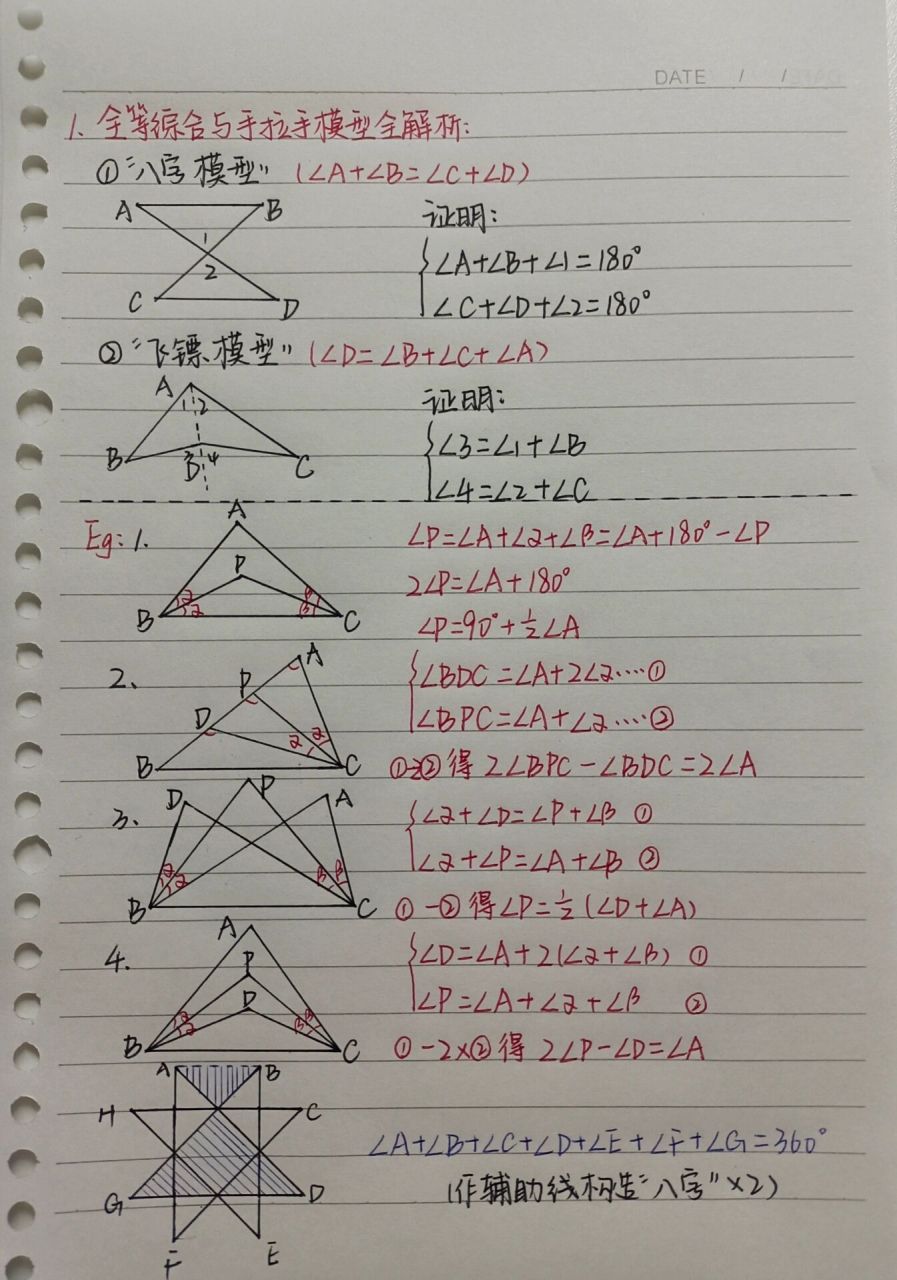 DATE / /
1. 全等综合与手拉手模型全解析:
①“八字模型” (∠A+∠B=∠C+∠D)
A B
1
2
C D
证明:
∠A+∠B+∠1=180°
∠C+∠D+∠2=180°
②“飞镖模型” (∠D=∠B+∠C+∠A)
A
1 2
B 3 D 4 C
证明:
∠3=∠1+∠B
∠4=∠2+∠C
Eg: 1.
A
P
α β
B α β C
∠P=∠A+∠α+∠β=∠A+180°-∠P
2∠P=∠A+180°
∠P=90°+½∠A
2.
A
P
D
α α
B C
∠BDC=∠A+2∠α····①
∠BPC=∠A+∠α····②
得 2∠BPC-∠BDC=2∠A
3.
D P A
α α β β
B C
∠α+∠D=∠P+∠β ①
∠α+∠P=∠A+∠β ②
①-②得∠P=½(∠D+∠A)
4.
A
P
D
α β
B α β C
∠D=∠A+2(∠α+∠β) ①
∠P=∠A+∠α+∠β ②
①-2×②得 2∠P-∠D=∠A
A B
H C
G D
F E
∠A+∠B+∠C+∠D+∠E+∠F+∠G=360°
(作辅助线构造“八字”×2)